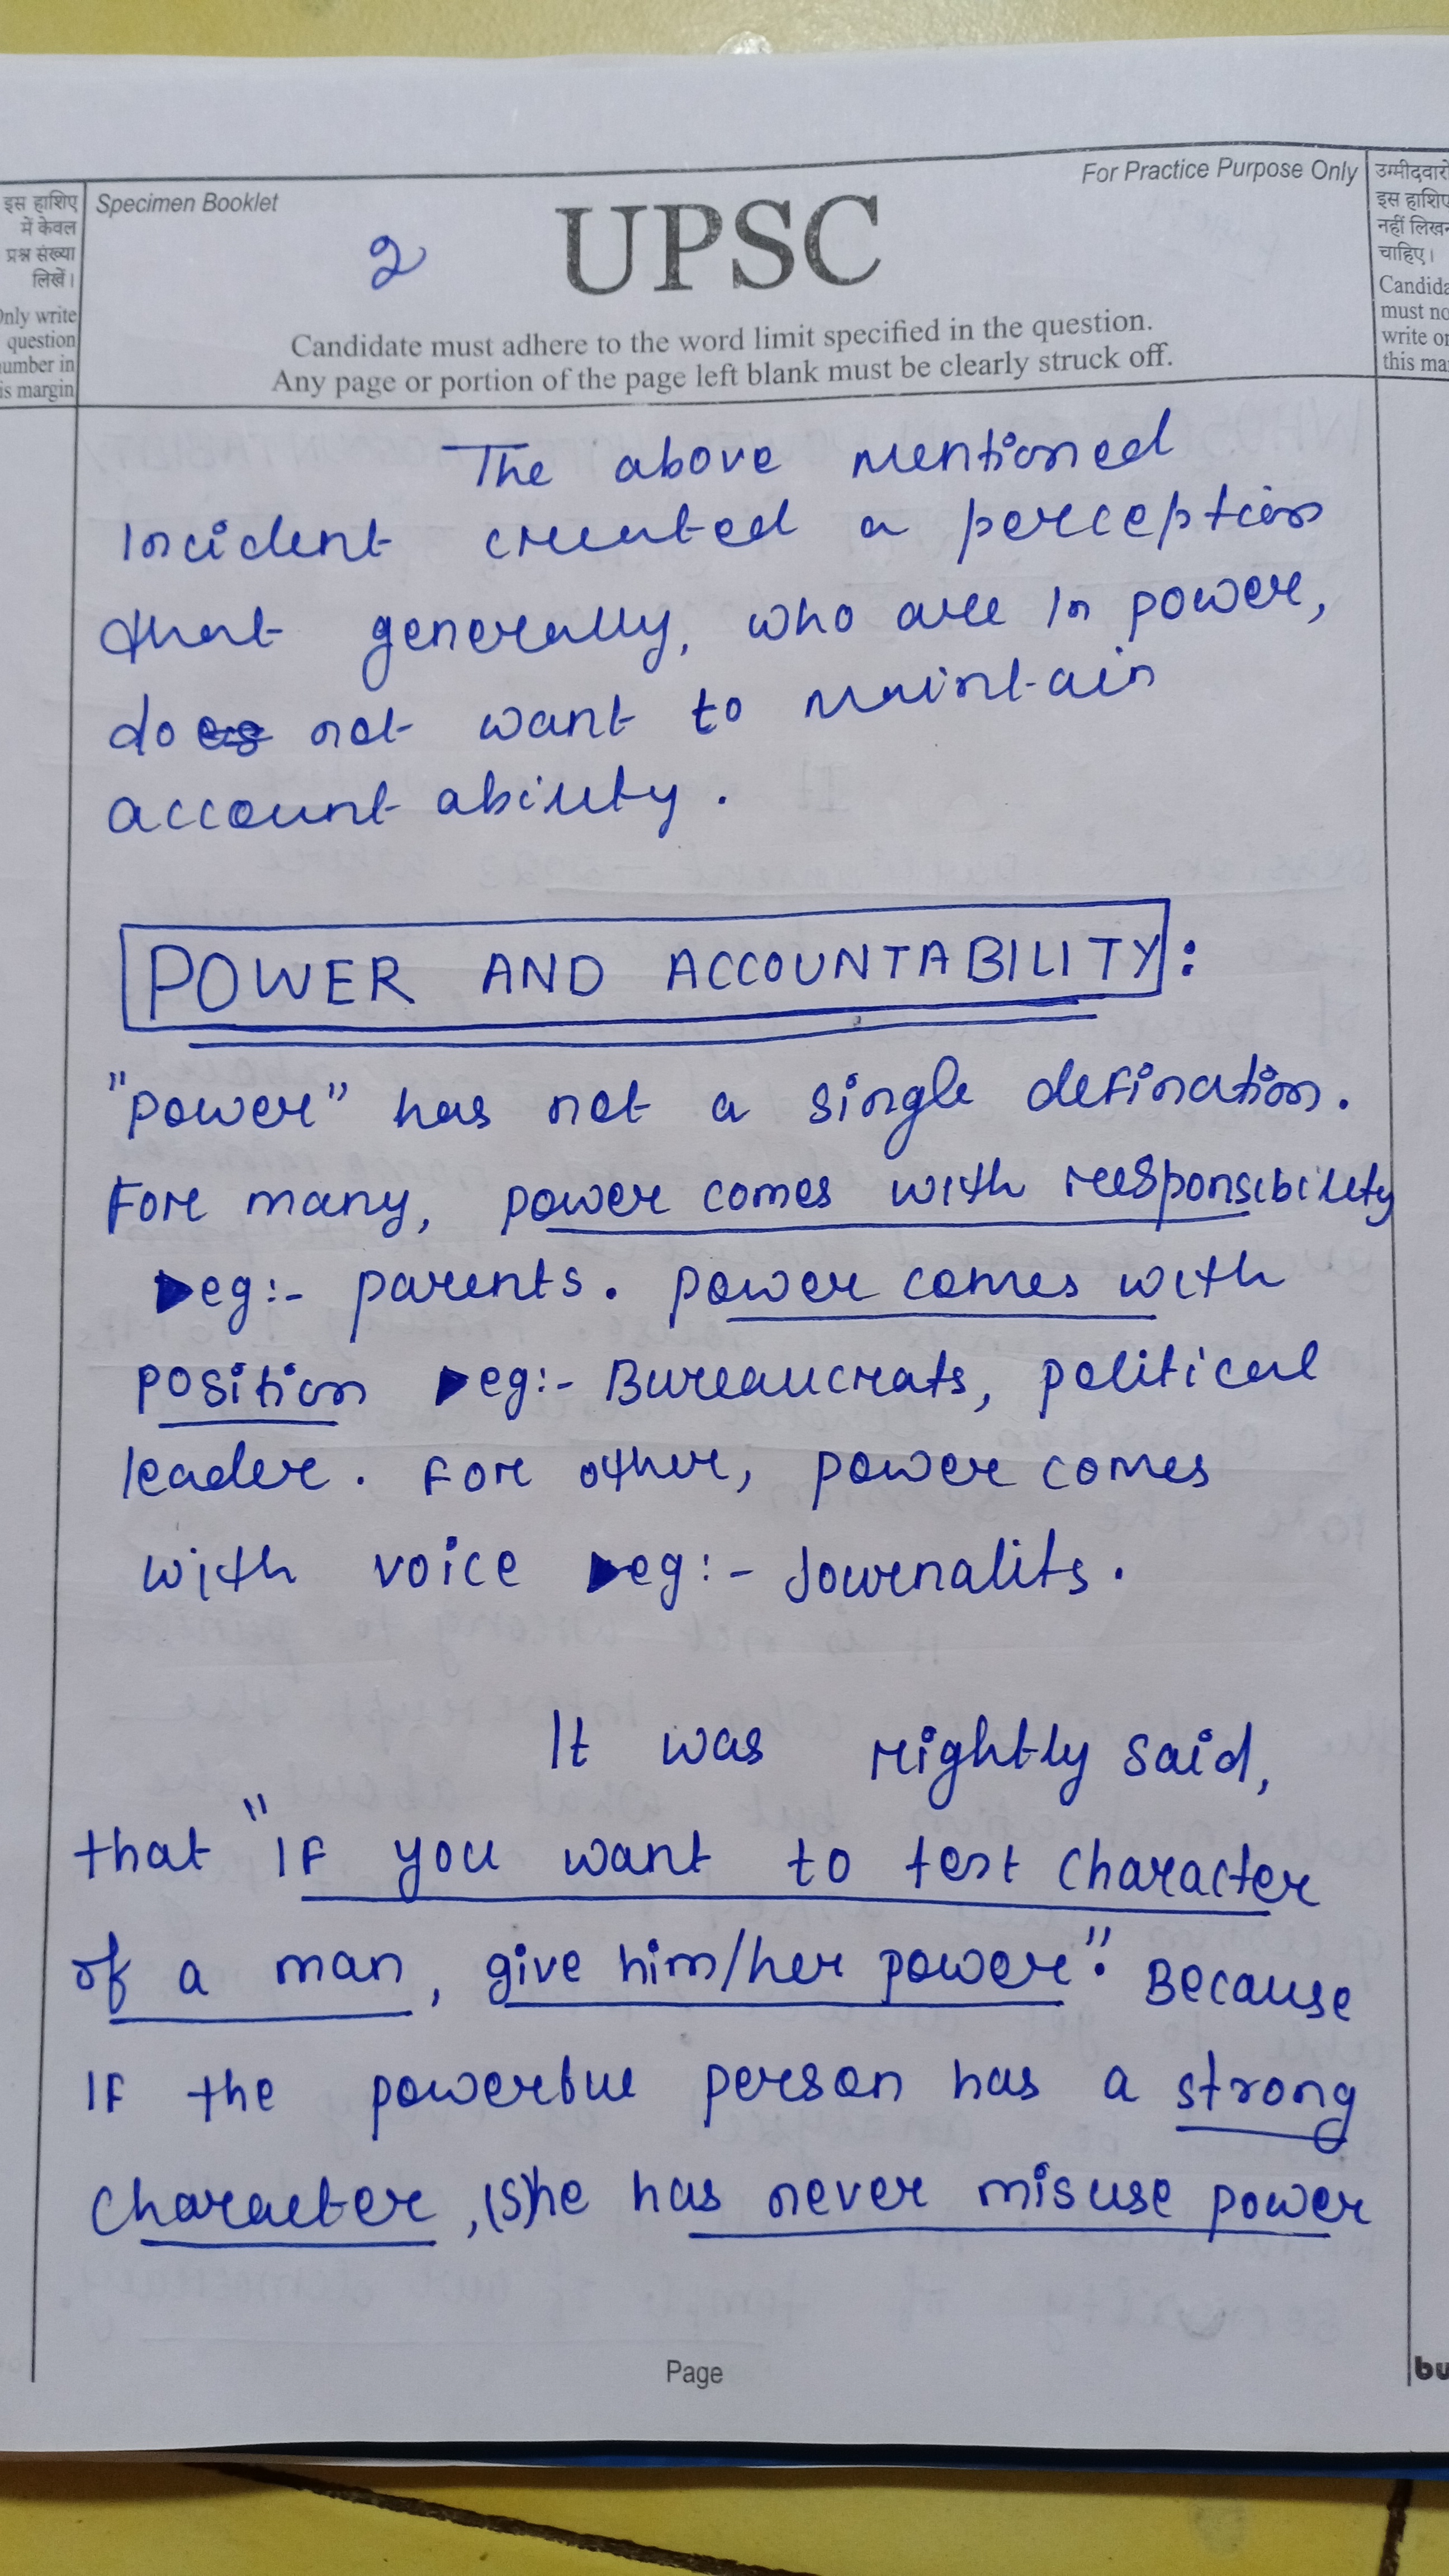 इस हाशिए
में केवल
प्रश्न संख्या
लिखें।
Only write
question
number in
this margin
Specimen Booklet
For Practice Purpose Only
2
UPSC
Candidate must adhere to the word limit specified in the question.
Any page or portion of the page left blank must be clearly struck off.
उम्मीदवारों
इस हाशिए
नहीं लिखन
चाहिए।
Candida
must no
write on
this mar
The above mentioned
Incident created a perception
that generally, who are in power,
does not want to maintain
accountability.
POWER AND ACCOUNTABILITY:
"power" has not a single defination.
For many, power comes with responsibility
eg:- parents. power comes with
position eg:- Bureaucrats, political
leader. For other, power comes
with voice eg:- Journalits.
It was rightly said,
that "If you want to test character
of a man, give him/her power". Because
If the powerful person has a strong
character, (s)he has never misuse power
Page
bu